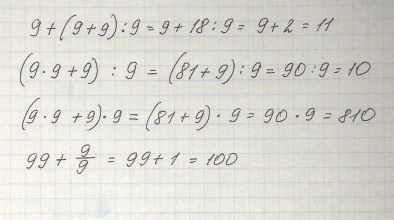 9 + (9+9) : 9 = 9 + 18 : 9 = 9 + 2 = 11
(9 · 9 + 9) : 9 = (81 + 9) : 9 = 90 : 9 = 10
(9 · 9 + 9) · 9 = (81 + 9) · 9 = 90 · 9 = 810
99 + 9/9 = 99 + 1 = 100